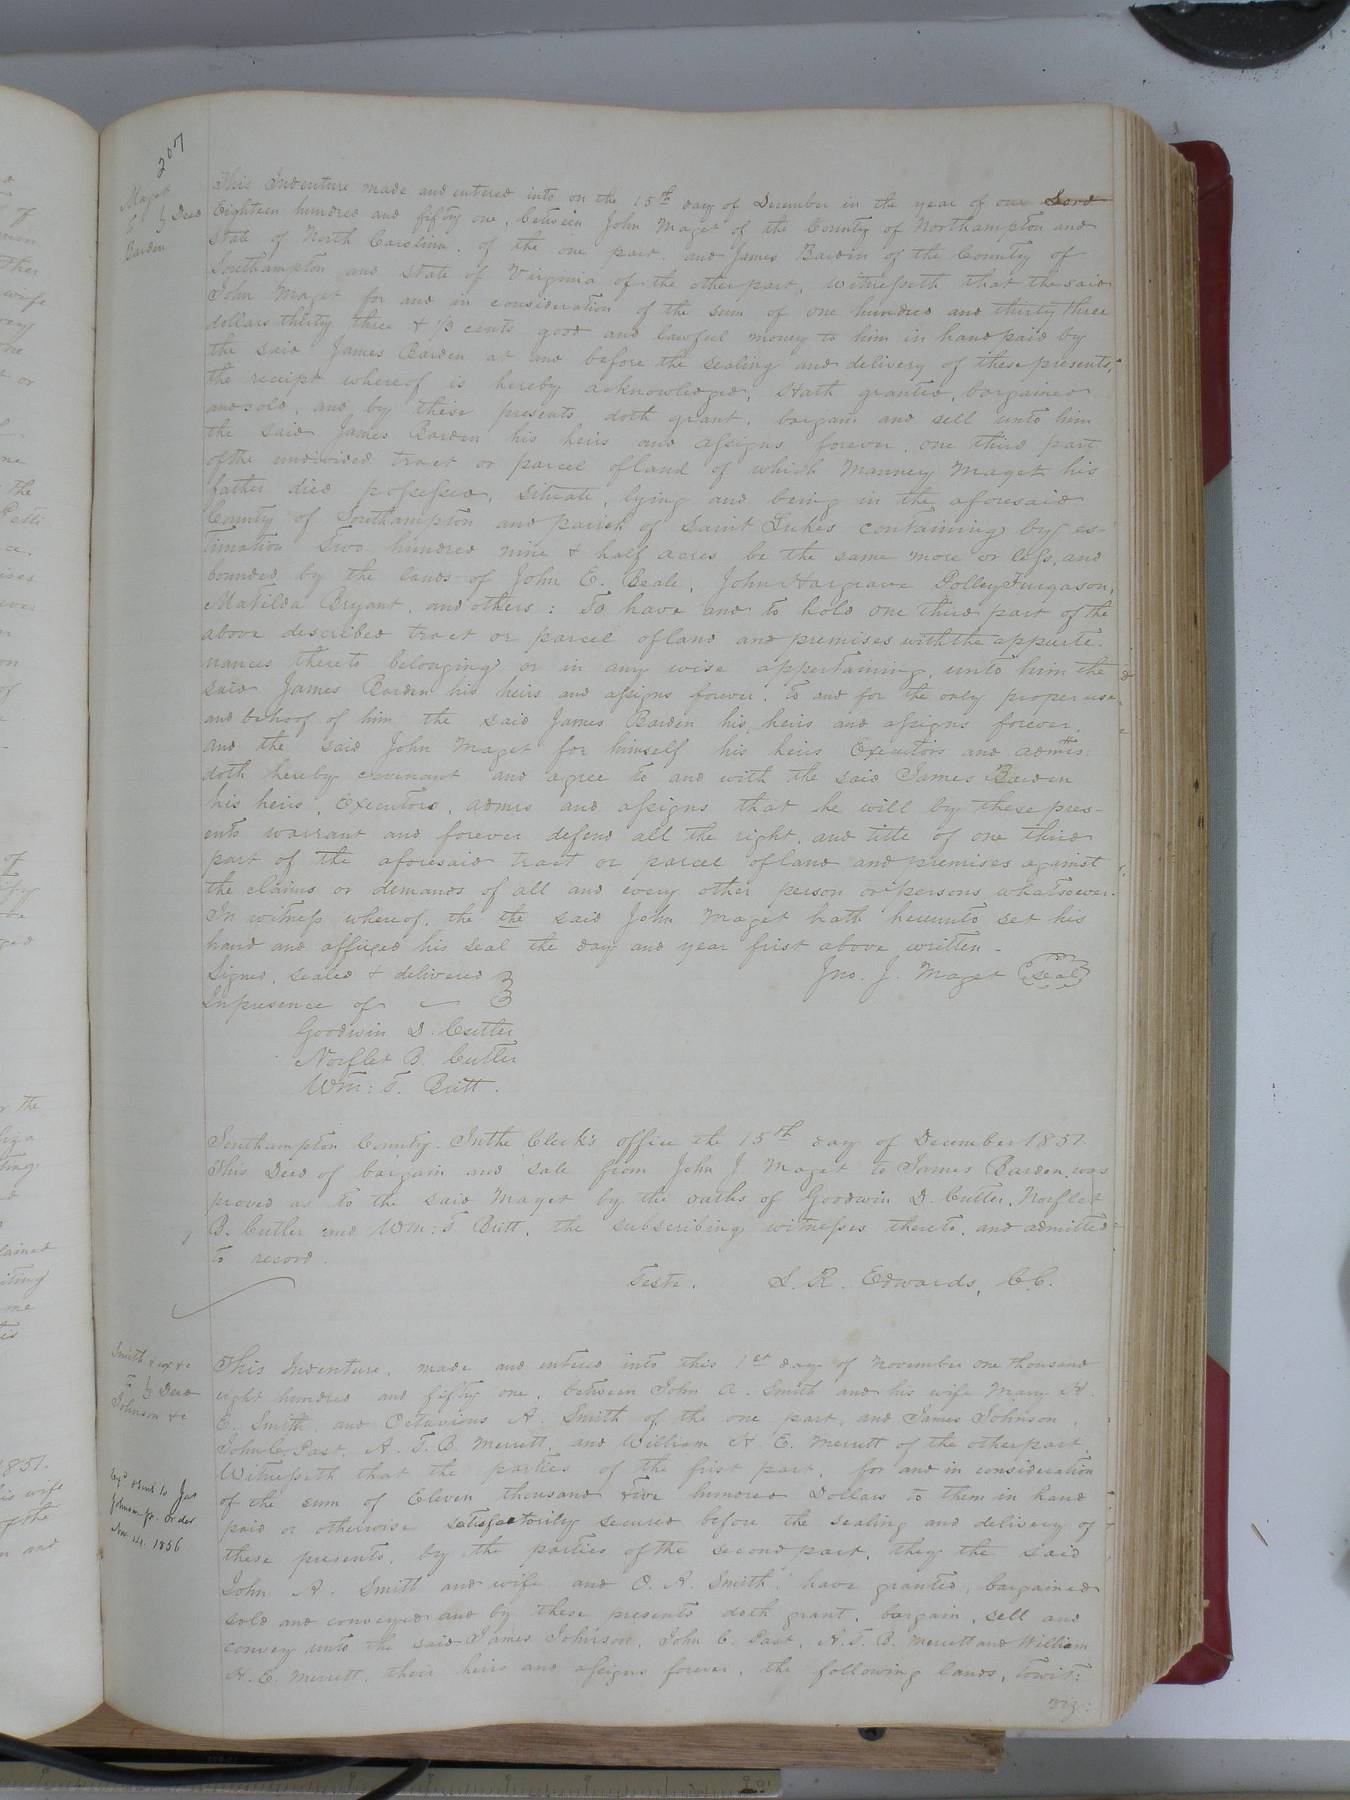 207
Maget
to } Deed
Barden
This Indenture made and entered into on the 15th day of December in the year of our Lord
Eighteen hundred and fifty one, between John Maget of the County of Northampton and
State of North Carolina, of the one part, and James Barden of the County of
Southampton and State of Virginia of the other part, Witnesseth that the said
John Maget for and in consideration of the sum of one hundred and thirty three
dollars thirty three & 1/3 cents good and lawful money to him in hand paid by
the said James Barden at and before the sealing and delivery of these presents,
the receipt whereof is hereby acknowledged, Hath granted, bargained
and sold, and by these presents doth grant, bargain and sell unto him
the said James Barden his heirs and assigns forever, one third part
of the undivided tract or parcel of land of which Manney Maget his
father died possessed, situate, lying and being in the aforesaid
County of Southampton and parish of Saint Lukes containing by es-
timation Two hundred nine & half acres be the same more or less, and
bounded by the lands of John E. Beale, John Hargrave Polley Furgason,
Matilda Bryant, and others: To have and to hold one third part of the
above described tract or parcel of land and premises with the appurte-
nances thereto belonging or in any wise appertaining, unto him the
said James Barden his heirs and assigns forever, to and for the only proper use
and behoof of him the said James Barden his heirs and assigns forever
and the said John Maget for himself his heirs Executors and admrs
doth hereby covenant and agree to and with the said James Barden
his heirs, Executors, admrs and assigns that he will by these pres-
ents warrant and forever defend all the right, and title of one third
part of the aforesaid tract or parcel of land and premises against
the claims or demands of all and every other person or persons whatsoever.
In witness whereof, the the said John Maget hath hereunto set his
hand and affixed his seal the day and year first above written -
Signed, sealed & delivered } Jno. J. Maget Seal
In presence of }
Goodwin D. Cutler
Norflet B. Cutler
Wm: T. Britt.
Southampton County. In the Clerk's office the 15th day of December 1851.
This Deed of bargain and sale from John J. Maget to James Barden, was
proved as to the said Maget by the oaths of Goodwin D. Cutler, Norflet
B. Cutler and Wm: T. Britt, the subscribing witnesses thereto, and admitted
to record.
Teste. L. R. Edwards, C.C.
Smith & ux &c
To } Deed
Johnson &c
This Indenture, made and entered into this 1st day of November one thousand
eight hundred and fifty one, between John A. Smith and his wife Mary H.
E. Smith and Octavious A. Smith of the one part, and James Johnson,
John C. Past, A. T. B. Merrett, and William H. E. Merrett of the other part,
Witnesseth that the parties of the first part, for and in consideration
of the sum of Eleven thousand five hundred Dollars to them in hand
paid or otherwise satisfactorily secured before the sealing and delivery of
these presents, by the parties of the second part, they the said
John A. Smith and wife and O. A. Smith have granted, bargained
sold and conveyed and by these presents doth grant, bargain, sell and
convey unto the said James Johnson, John C. Past, A. T. B. Merrett and William
H. E. Merrett, their heirs and assigns forever, the following lands, towit:
to Jas
Johnson
1856